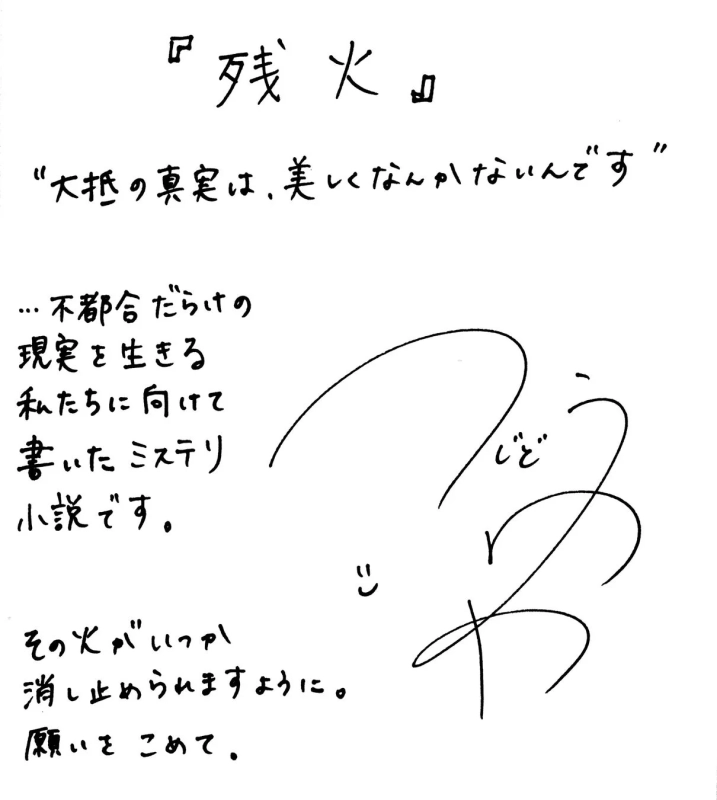 『残火』
“大抵の真実は、美しくなんかないんです”
…不都合だらけの
現実を生きる
私たちに向けて
書いたミステリ
小説です。
その火がいつか
消し止められますように。
願いをこめて。